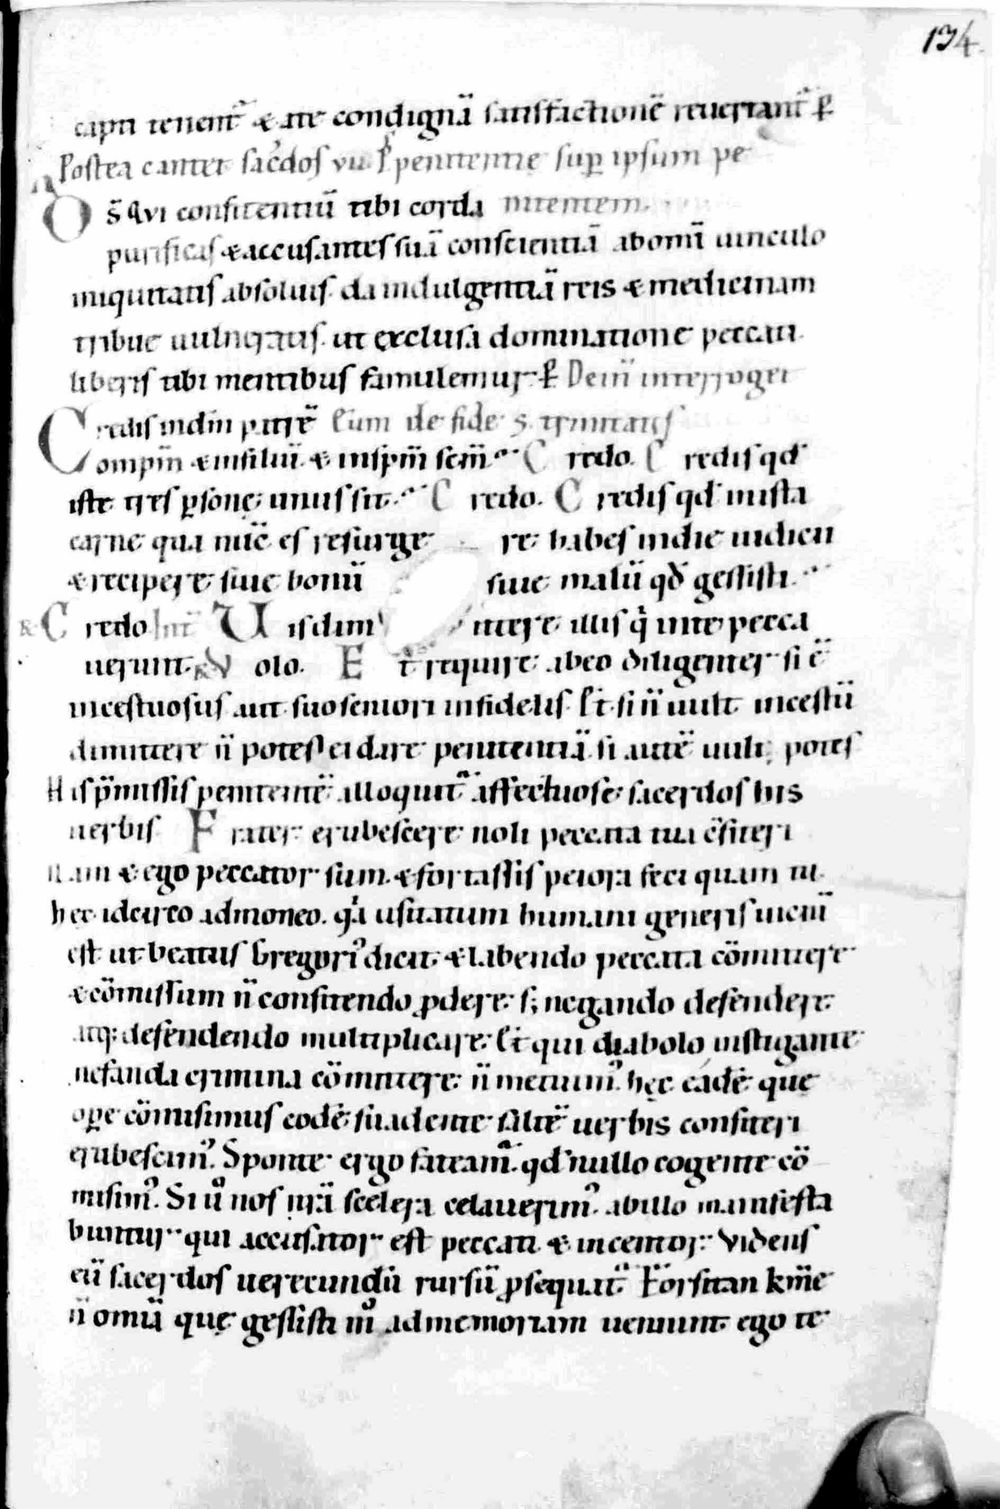 134.
capti tenent᷑ & ate condignā satisfactionē reuertant᷑ ꝑ
Postea cantet sac̄dos vii ps̄ penitentie sup ipsum pe
Ds̄ Qui confitentiū tibi corda nitentem.
purificas & accusantes suā conscientiā ab omī uinculo
iniquitatis absoluis. da indulgentiā reis & medicinam
tribue uulneratis. ut exclusa dominatione peccati
liberis tibi mentibus famulemur. ꝑ Dein̄ interroget
Credis in dm̄ patrē Eum de fide s. trinitatis
omp̄m & in filiū. & in sp̄m sc̄m. Credo. Credis qđ
iste tres ꝑsonę unus sit. Credo. Credis qđ in ista
carne qua nūc es resurgere habes in die iudicii
& recipere siue bonū siue malū qđ gessisti.
R Credo Int̄ Uis dimittere illis qͥ in te pecca
uerunt. R Uolo. Et̄ require ab eo diligenter si ē
incestuosus aut suo seniori infidelis. Et si n̄ uult incestū
dimittere n̄ potes ei dare penitentiā si autē uult potes
His p̄missis penitentē alloquit᷑ affectuose sacerdos his
uerbis Frater erubescere noli peccata tua c̄fiteri
nam & ego peccator sum. & fortassis peiora feci quam tu.
hec idcirco admoneo. qͣ usitatum humani generis uiciū
est ut beatus Gregoriꝰ dicit & labendo peccata cōmittere
& cōmissum n̄ confitendo ꝓdere. s; negando defendere
atq; defendendo multiplicare. Et qui diabolo instigante
nefanda crimina cōmittere n̄ metuimꝰ. hęc eadē quę
ope cōmisimus eodē suadente saltē uerbis confiteri
erubescimꝰ. Sponte ergo fateam᷑. qđ nullo cogente cō
misimꝰ. Si ū nos nr̄a scelera celauerimꝰ. ab illo manifesta
buntur qui accusator est peccati & incentor. Videns
eū sacerdos uerecundū rursū ꝓsequat᷑. Forsitan km̄e
n̄ omīa quę gessisti m̊ ad memoriam ueniunt. ego te